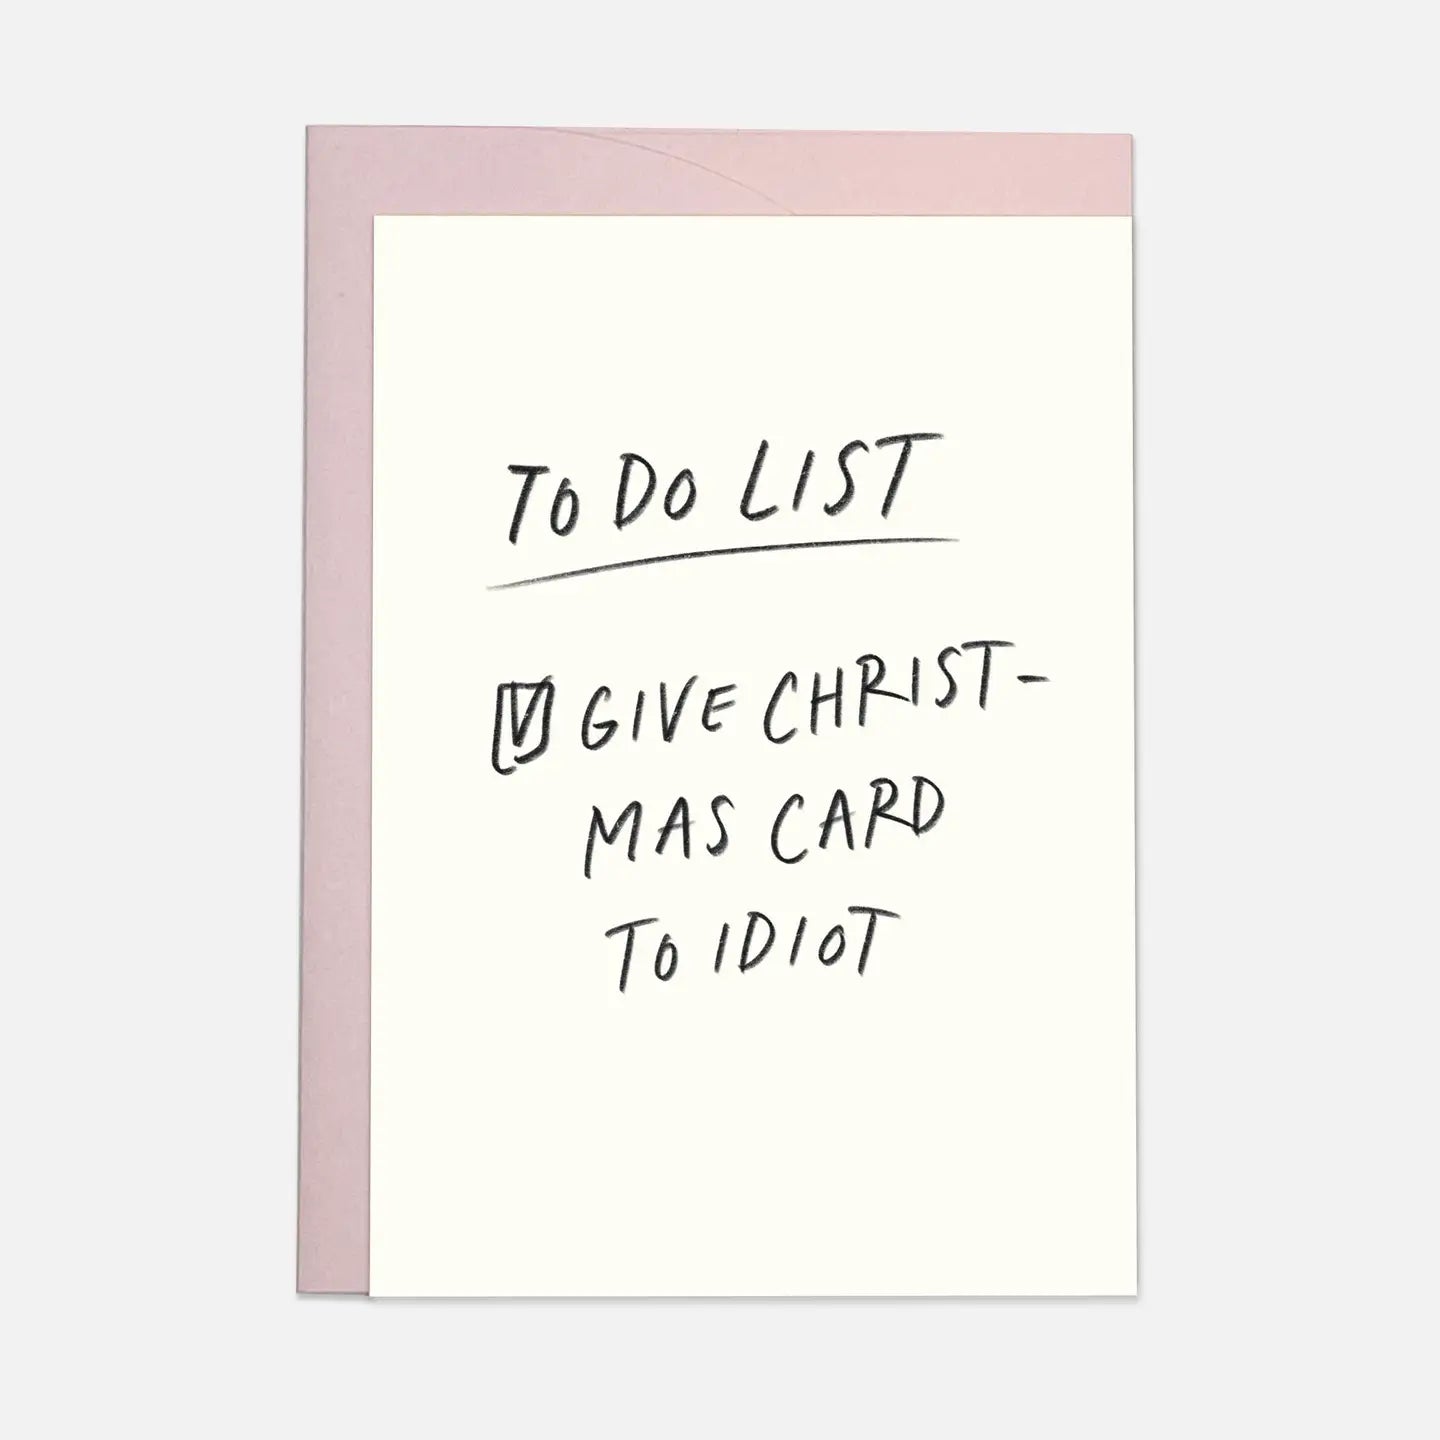 TO DO LIST
GIVE CHRIST-
MAS CARD
TO IDIOT